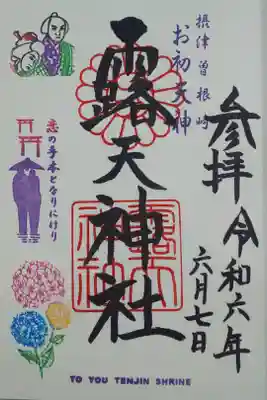 参拝
令和六年
六月七日
摂津曽根崎
お初天神
露天神社
恋の手本となりにけり
TO YOU TENJIN SHRINE